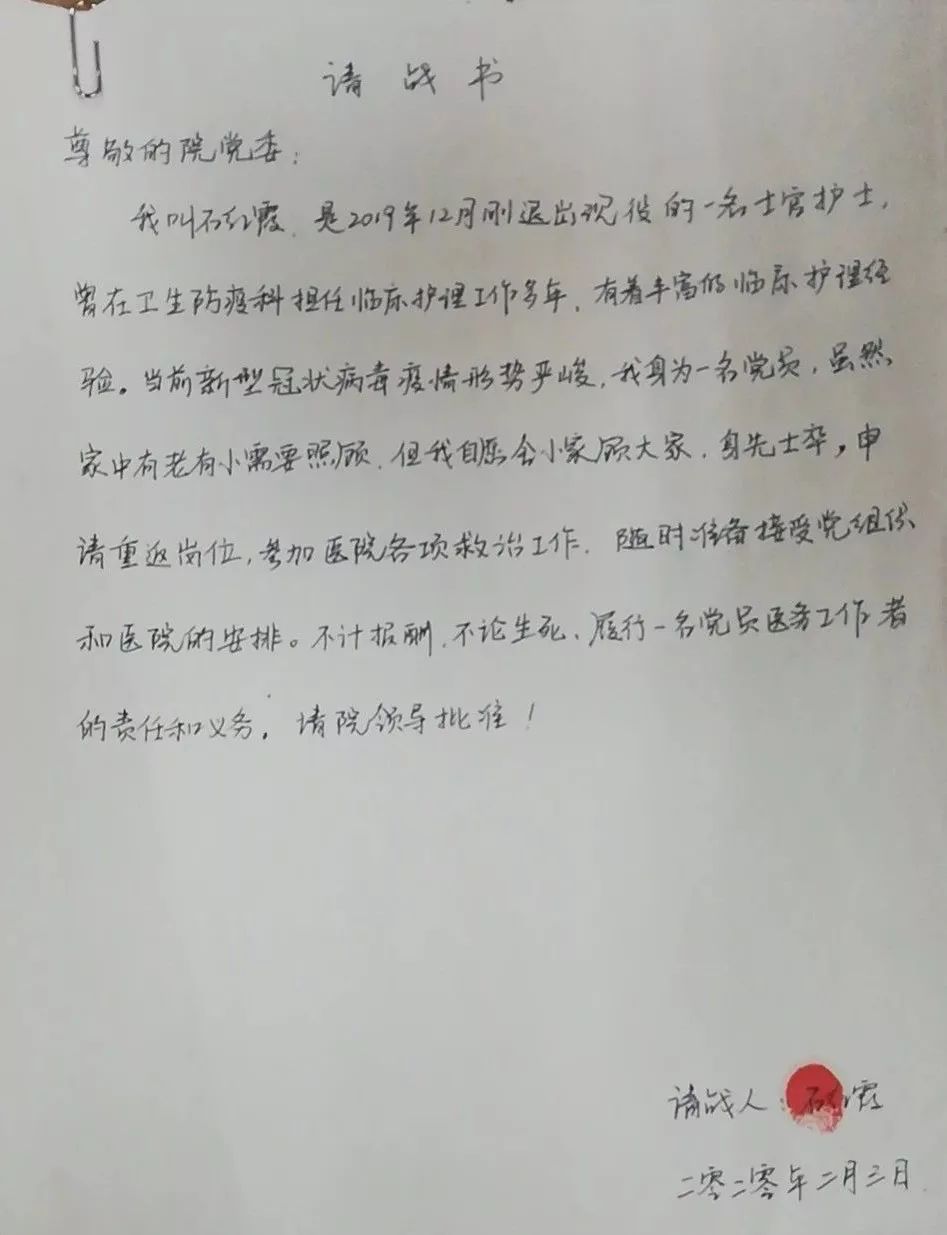 请战书
尊敬的院党委:
我叫石红霞,是2019年12月刚退出现役的一名士官护士,
曾在卫生防疫科担任临床护理工作多年,有着丰富的临床护理经
验。当前新型冠状病毒疫情形势严峻,我身为一名党员,虽然
家中有老有小需要照顾,但我自愿舍小家顾大家,身先士卒,申
请重返岗位,参加医院各项救治工作,随时准备接受党组织
和医院的安排。不计报酬,不论生死、履行一名党员医务工作者
的责任和义务,请院领导批准!
请战人 石红霞
二零二零年二月三日